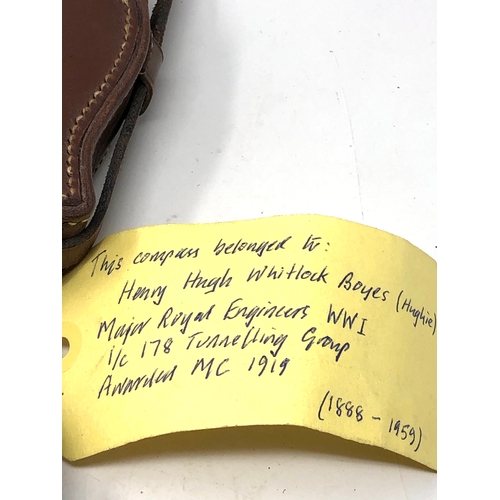 This compass belonged to:
Henry Hugh Whitlock Boyes (Hughie)
Major Royal Engineers WWI
i/c 178 Tunnelling Group
Awarded MC 1919
(1888 - 1959)